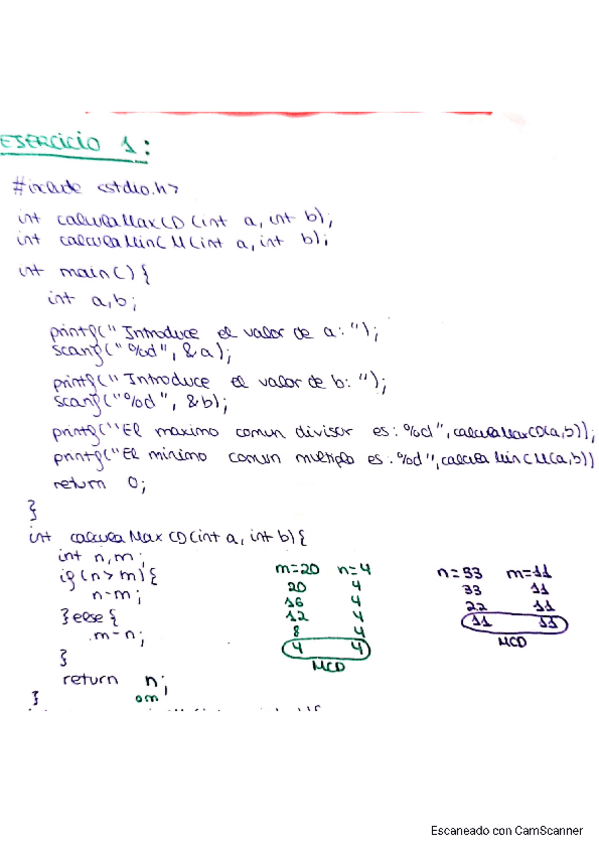 EJERCICIO 1:
#include <stdio.h>
int calculaMaxCD (int a, int b);
int calculaMinCM (int a, int b);
int main() {
int a,b;
printf(" Introduce el valor de a: ");
scanf("%d", &a);
printf(" Introduce el valor de b: ");
scanf("%d", &b);
printf("El maximo comun divisor es: %d", calculaMaxCD(a,b));
printf("El minimo comun multiplo es: %d", calculaMinCM(a,b))
return 0;
}
int calculaMaxCD (int a, int b) {
int n,m;
if (n>m) {
n-m;
} else {
m-n;
}
return n;
o m
}
m=20 n=4
20 4
16 4
12 4
8 4
4 4
MCD
n=33 m=11
33 11
22 11
11 11
MCD
Escaneado con CamScanner